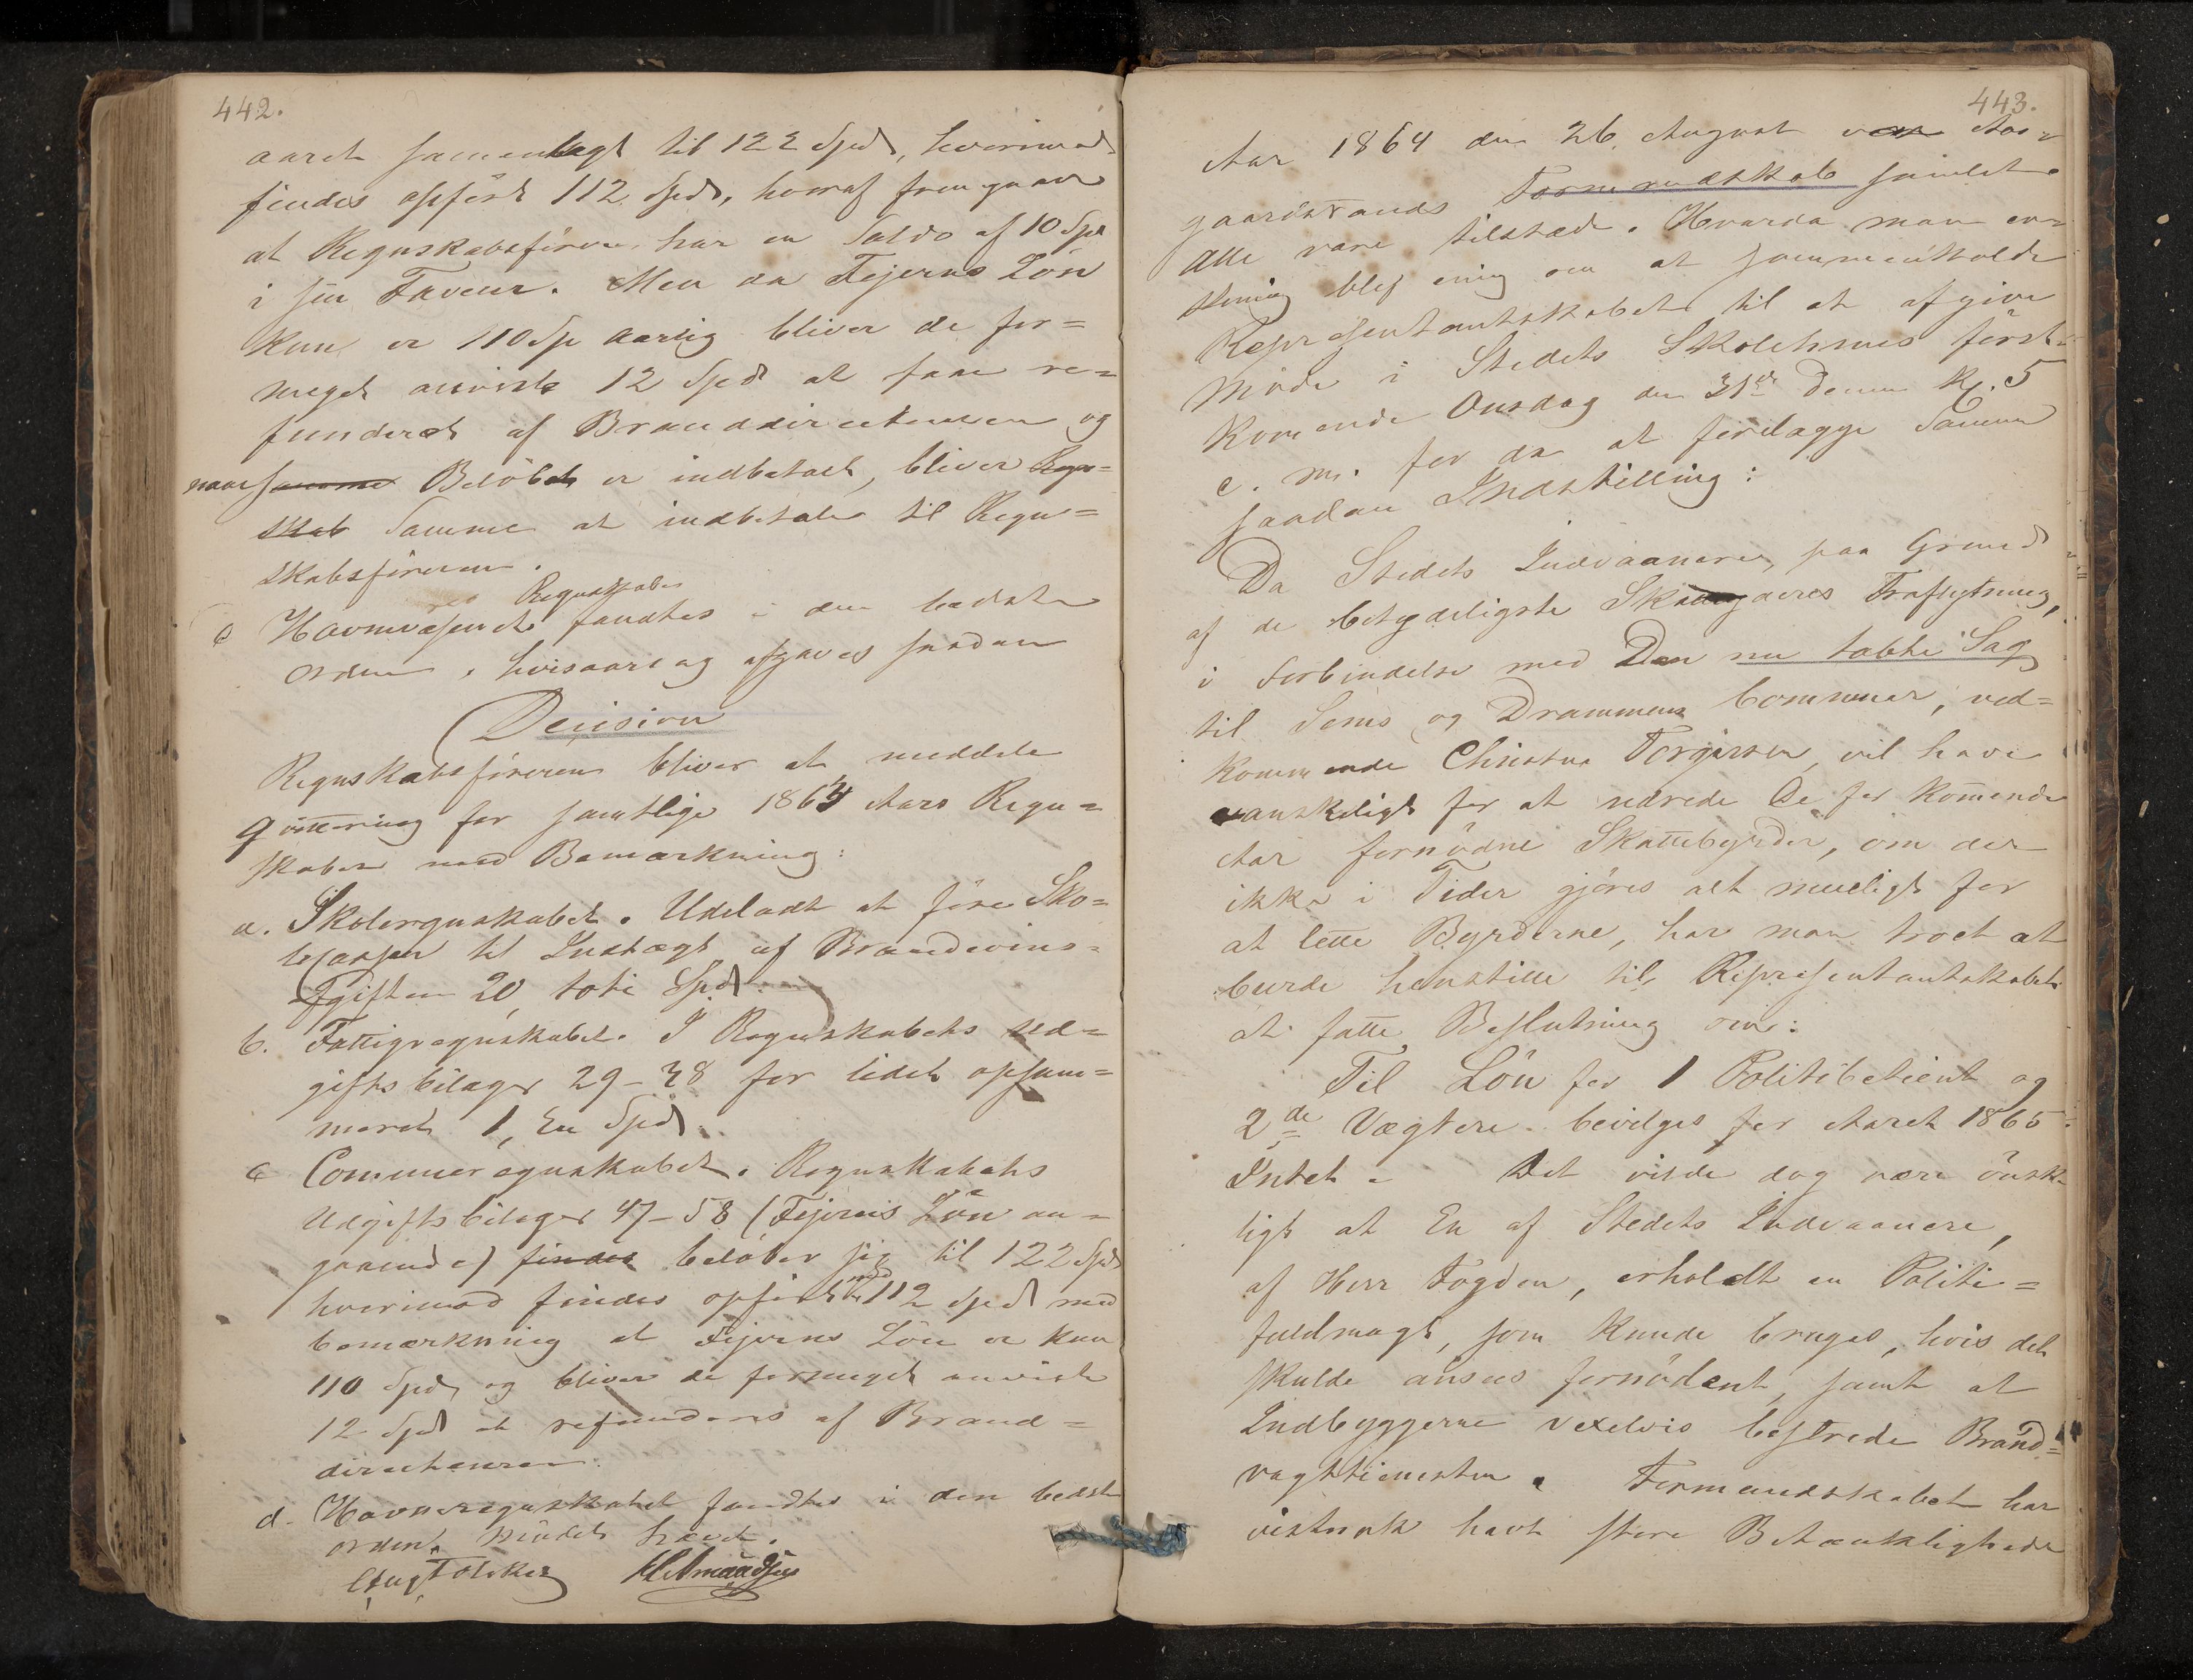 442.
aaret sammenlagt til 122 Spd, hvorimod
findes opført 112 Spd, hvoraf fremgaar
at Regnskabsføreren har en Saldo af 10 Spd
i sin Faveur. Men da Fejerens Løn
kun er 110 Sp aarlig bliver de for=
meget anviste 12 Spd at faae re=
funderet af Branddirecteuren og
naar samme Beløbet er indbetalt, bliver Regn=
skab Samme at indbetale til Regn=
skabsføreren.
Regnskabet
e Havnevæsenets fandtes i den bedste
Orden, hvisaarsag afgaves saadan
Decision
Regnskabsføreren bliver at meddele
Qvittering for samtlige 1864 Aars Regn=
skaber med Bemærkning:
a. Skoleregnskabet. Udeladt at føre Sko=
lecassen til Indtægt af Brændevins=
afgiften 20, toti Spd.
b. Fattigregnskabet. I Regnskabets Ud=
giftsbilager 29-38 for lidet opsum=
meret 1, En Spd.
c Communeregnskabet. Regnskabets
Udgiftsbilager 47-58 (Fejerens Løn an=
gaaende) findes beløber sig til 122 Spd
hvorimod findes opført med 112 Spd med
bemærkning at Fejerens Løn er kun
110 Spd, og bliver de formeget anviste
12 Spd at refunderes af Brand=
directeuren.
d. Havneregnskabet fandtes i den bedste
orden. Mødet hævet.
Aug Føleker HAmundsen
443.
Aar 1864 den 26. August var Aas=
gaardstrands Formandskab samlet.
Alle vare tilstede. Hvorda man en=
stemig blef enig om at sammenkalde
Repræsentantskabet til at afgive
Møde i Stedets Skolehuus først=
kommende Onsdag den 31te Dennes Kl. 5
e. m. for da at forelægge Samme
saadan Indstilling:
Da Stedets Indvaanere, paa Grund
af de betydeligste Skatteyderes Fraflytning,
i Forbindelse med Den nu tabte Sag
til Sems og Drammens Commune, ved=
kommende Christine Torgersen, vil have
vanskeligt for at udrede De for kommende
Aar fornødne Skattebyrder, om der
ikke i Tider gjøres alt mueligt for
at lette Byrderne, har man troet at
burde henstille til Repræsentantskabet
at fatte Beslutning om:
Til Løn for 1 Politibetient og
2de Vægtere bevilges for Aaret 1865
Intet. Det vilde dog være ønske
ligt at En af Stedets Indvaanere,
af Herr Fogden, erholdt en Politi=
fuldmagt, som kunde bruges, hvis det
skulde ansees fornødent, samt at
Indbyggerne vexelvis bestrede Brand=
vagttienesten. Formandskabet har
vistnok havt store Betænkligheder